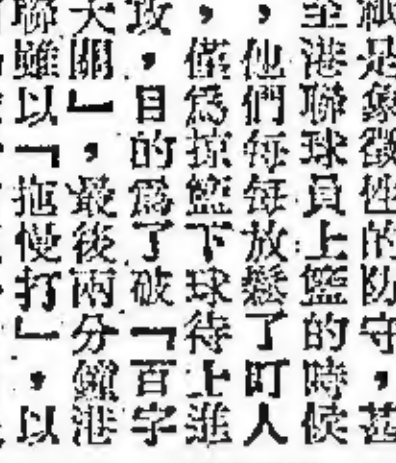 是象徵性的防守，
至港聯球員上籃的時候
，他們每每放鬆了盯人
，僅為掠籃下球待上進
攻，目的為了破「百字
大關」，最後兩分鐘港
聯雖以「拖慢打」，以